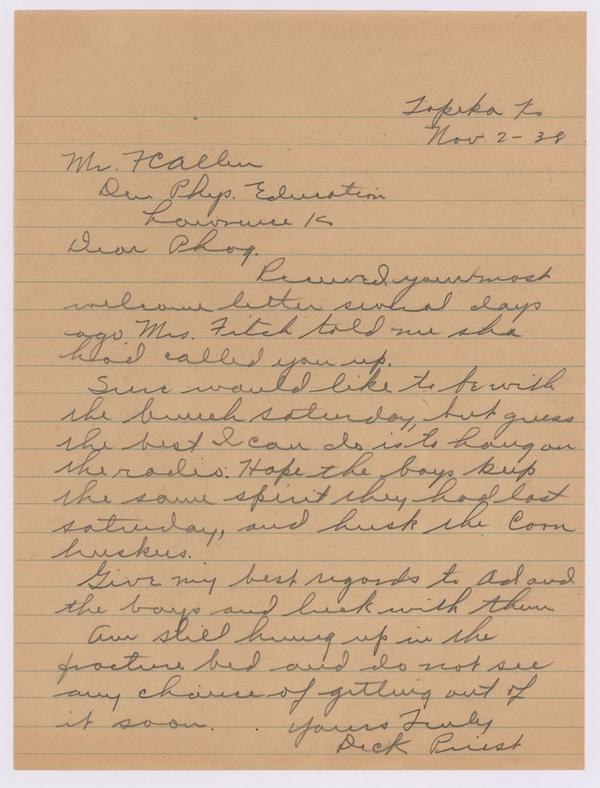 Topeka Ks
Nov 2 - 38
Mr. F C Allen
Div. Phys. Education
Lawrence K
Dear Phog.
Received your most
welcome letter several days
ago. Mrs. Fitch told me she
had called you up.
Sure would like to be with
the bunch saturday, but guess
the best I can do is to hang on
the radio. Hope the boys keep
the same spirit they had last
saturday, and husk the Corn
huskers.
Give my best regards to Ad and
the boys and luck with them
Am still hung up in the
fracture bed and do not see
any chance of getting out of
it soon. Yours Truly
Dick Priest